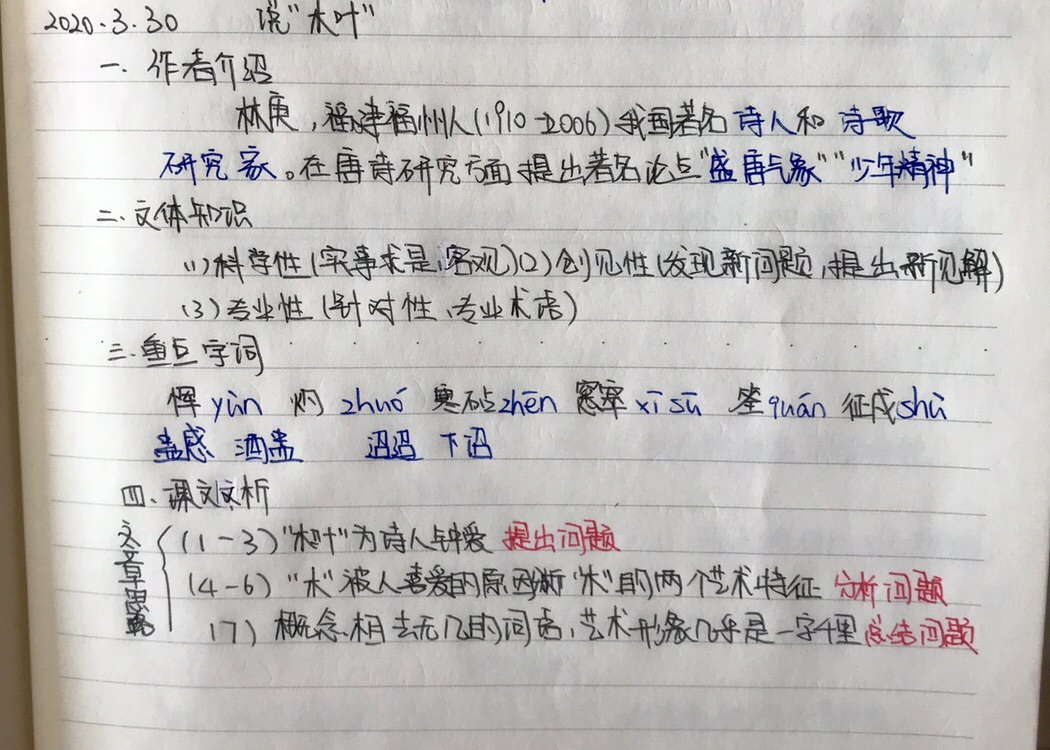 2020.3.30 说"木叶"
一. 作者介绍
林庚,福建福州人(1910-2006)我国著名诗人和诗歌
研究家。在唐诗研究方面提出著名论点"盛唐气象""少年精神"
二.文体知识
(1)科学性(实事求是,客观)(2)创见性(发现新问题,提出新见解)
(3)专业性(针对性、专业术语)
三.重点字词
恽yùn 灼zhuó 寒砧zhēn 窸窣xī sū 荃quán 征戍shù
蛊惑 酒盅 迢迢 下诏
四、课文文析
文章思路
(1-3)"木叶"为诗人钟爱 提出问题
(4-6)"木"被人喜爱的原因 "木"的两个艺术特征 分析问题
(7)概念相去无几的词语,艺术形象几乎是一字千里 总结问题